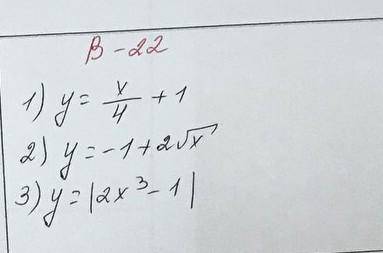 В-22
1) y = x/4 + 1
2) y = -1 + 2√x
3) y = |2x³ - 1|